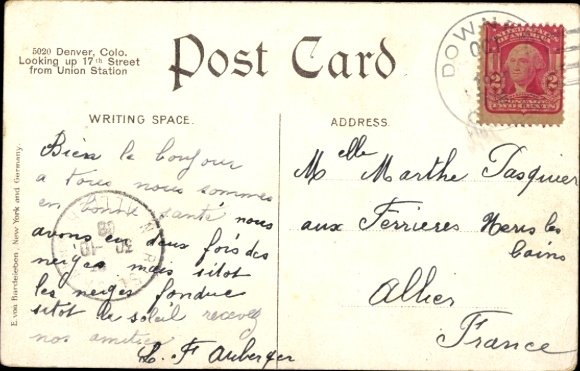 5020 Denver, Colo.
Looking up 17th Street
from Union Station
Post Card
WRITING SPACE.
ADDRESS.
E. von Bardeleben, New York and Germany.
DOWN
OCT
UNITED STATES
2 2
POSTAGE
TWO CENTS
Bien le bonjour
a tous nous sommes
en bonne santé nous
avons eu deux fois des
neiges mais sitot
les neiges fondue
sitot le soleil recevez
nos amities
L. F. Auberger
30 -10
08
Melle Marthe Pasquier
aux Ferrieres Neris les
bains
Allier
France